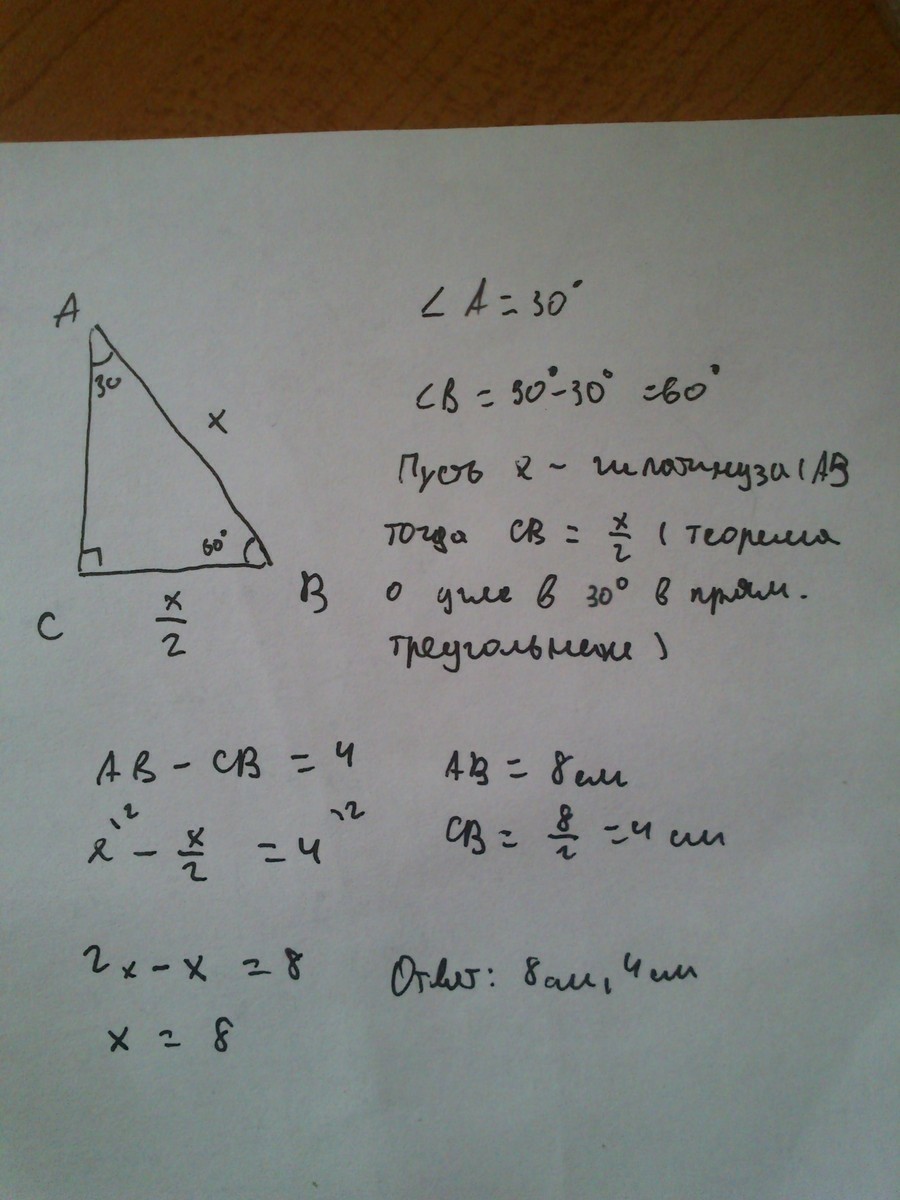 A
30
x
60°
C
x/2
B
∠ A = 30°
∠B = 90° - 30° = 60°
Пусть x - гипотинуза (AB
тогда CB = x/2 ( теорема
о угле в 30° в прям.
треугольнике )
AB - CB = 4
x^{\2} - x/2 = 4^{\2}
2x - x = 8
x = 8
AB = 8см
CB = 8/2 = 4 см
Ответ: 8см, 4см